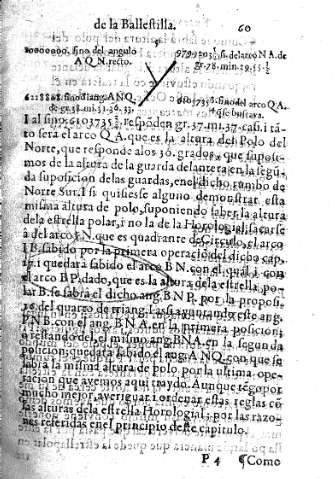 de la Ballestilla. 60
10000000. sino del angulo
A Q N. recto.
9791203 1/2 s. del arco N A. de
gr. 78. min. 19. 55. 1/2
6228808. sino d'l ang. A N Q.
de gr. 38. mi. 53. 36.
sino del arco Q A.
q̃ se buscava.
I al sino: respõden gr. 37. mi. 37. casi. i tã-
to sera el arco Q A. que es la altura del Polo del
Norte, que responde a los 36. grados, que suposi-
mos de la altura de la guarda delantera en la segũ-
da suposicion de las guardas, en el dicho rumbo de
Norte Sur. I si quisiese alguno demonstrar esta
misma altura de polo, suponiendo saber la altura
de la estrella polar, i no la de la Horologial, sacarse
à del arco I N. que es quadrante de Circulo, el arco
I B. sabido por la primera operaciõ del dicho cap.
i quedarà sabido el arco B N. con el qual i con
el arco B P. dado, que es la altura de la estrella po-
lar B. se sabrà el dicho ang. B N P. por la proposi.
16. del quarto de triang. I assi ayuntando este ang.
P N B. con el ang. B N A. en la primera posicion;
i restandolo del mismo ang. B N A. en la segunda
posicion; quedarà sabido el ang. A N Q. con que se
sabrà la misma altura de polo por la ultima ope-
racion que avemos aqui traydo. Aunque tẽgo por
mucho mejor, averiguar i ordenar estas reglas cõ
las alturas de la estrella Horologial; por las razo-
nes referidas en el principio deste capitulo.
P 4 ¶ Como